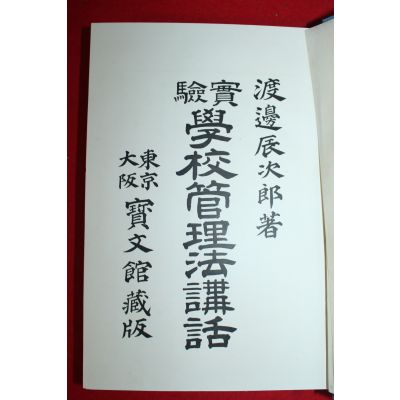 渡邊辰次郎著
實驗
學校管理法講話
東京
大阪
寶文館藏版